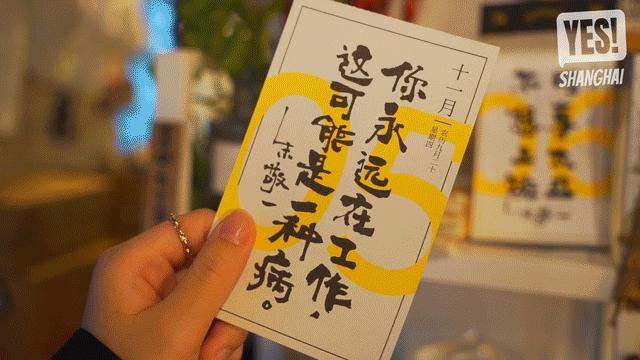 十一月
农历九月二十
星期四
05
你永远在工作，
这可能是一种病。
—朱敬一
YES!
SHANGHAI